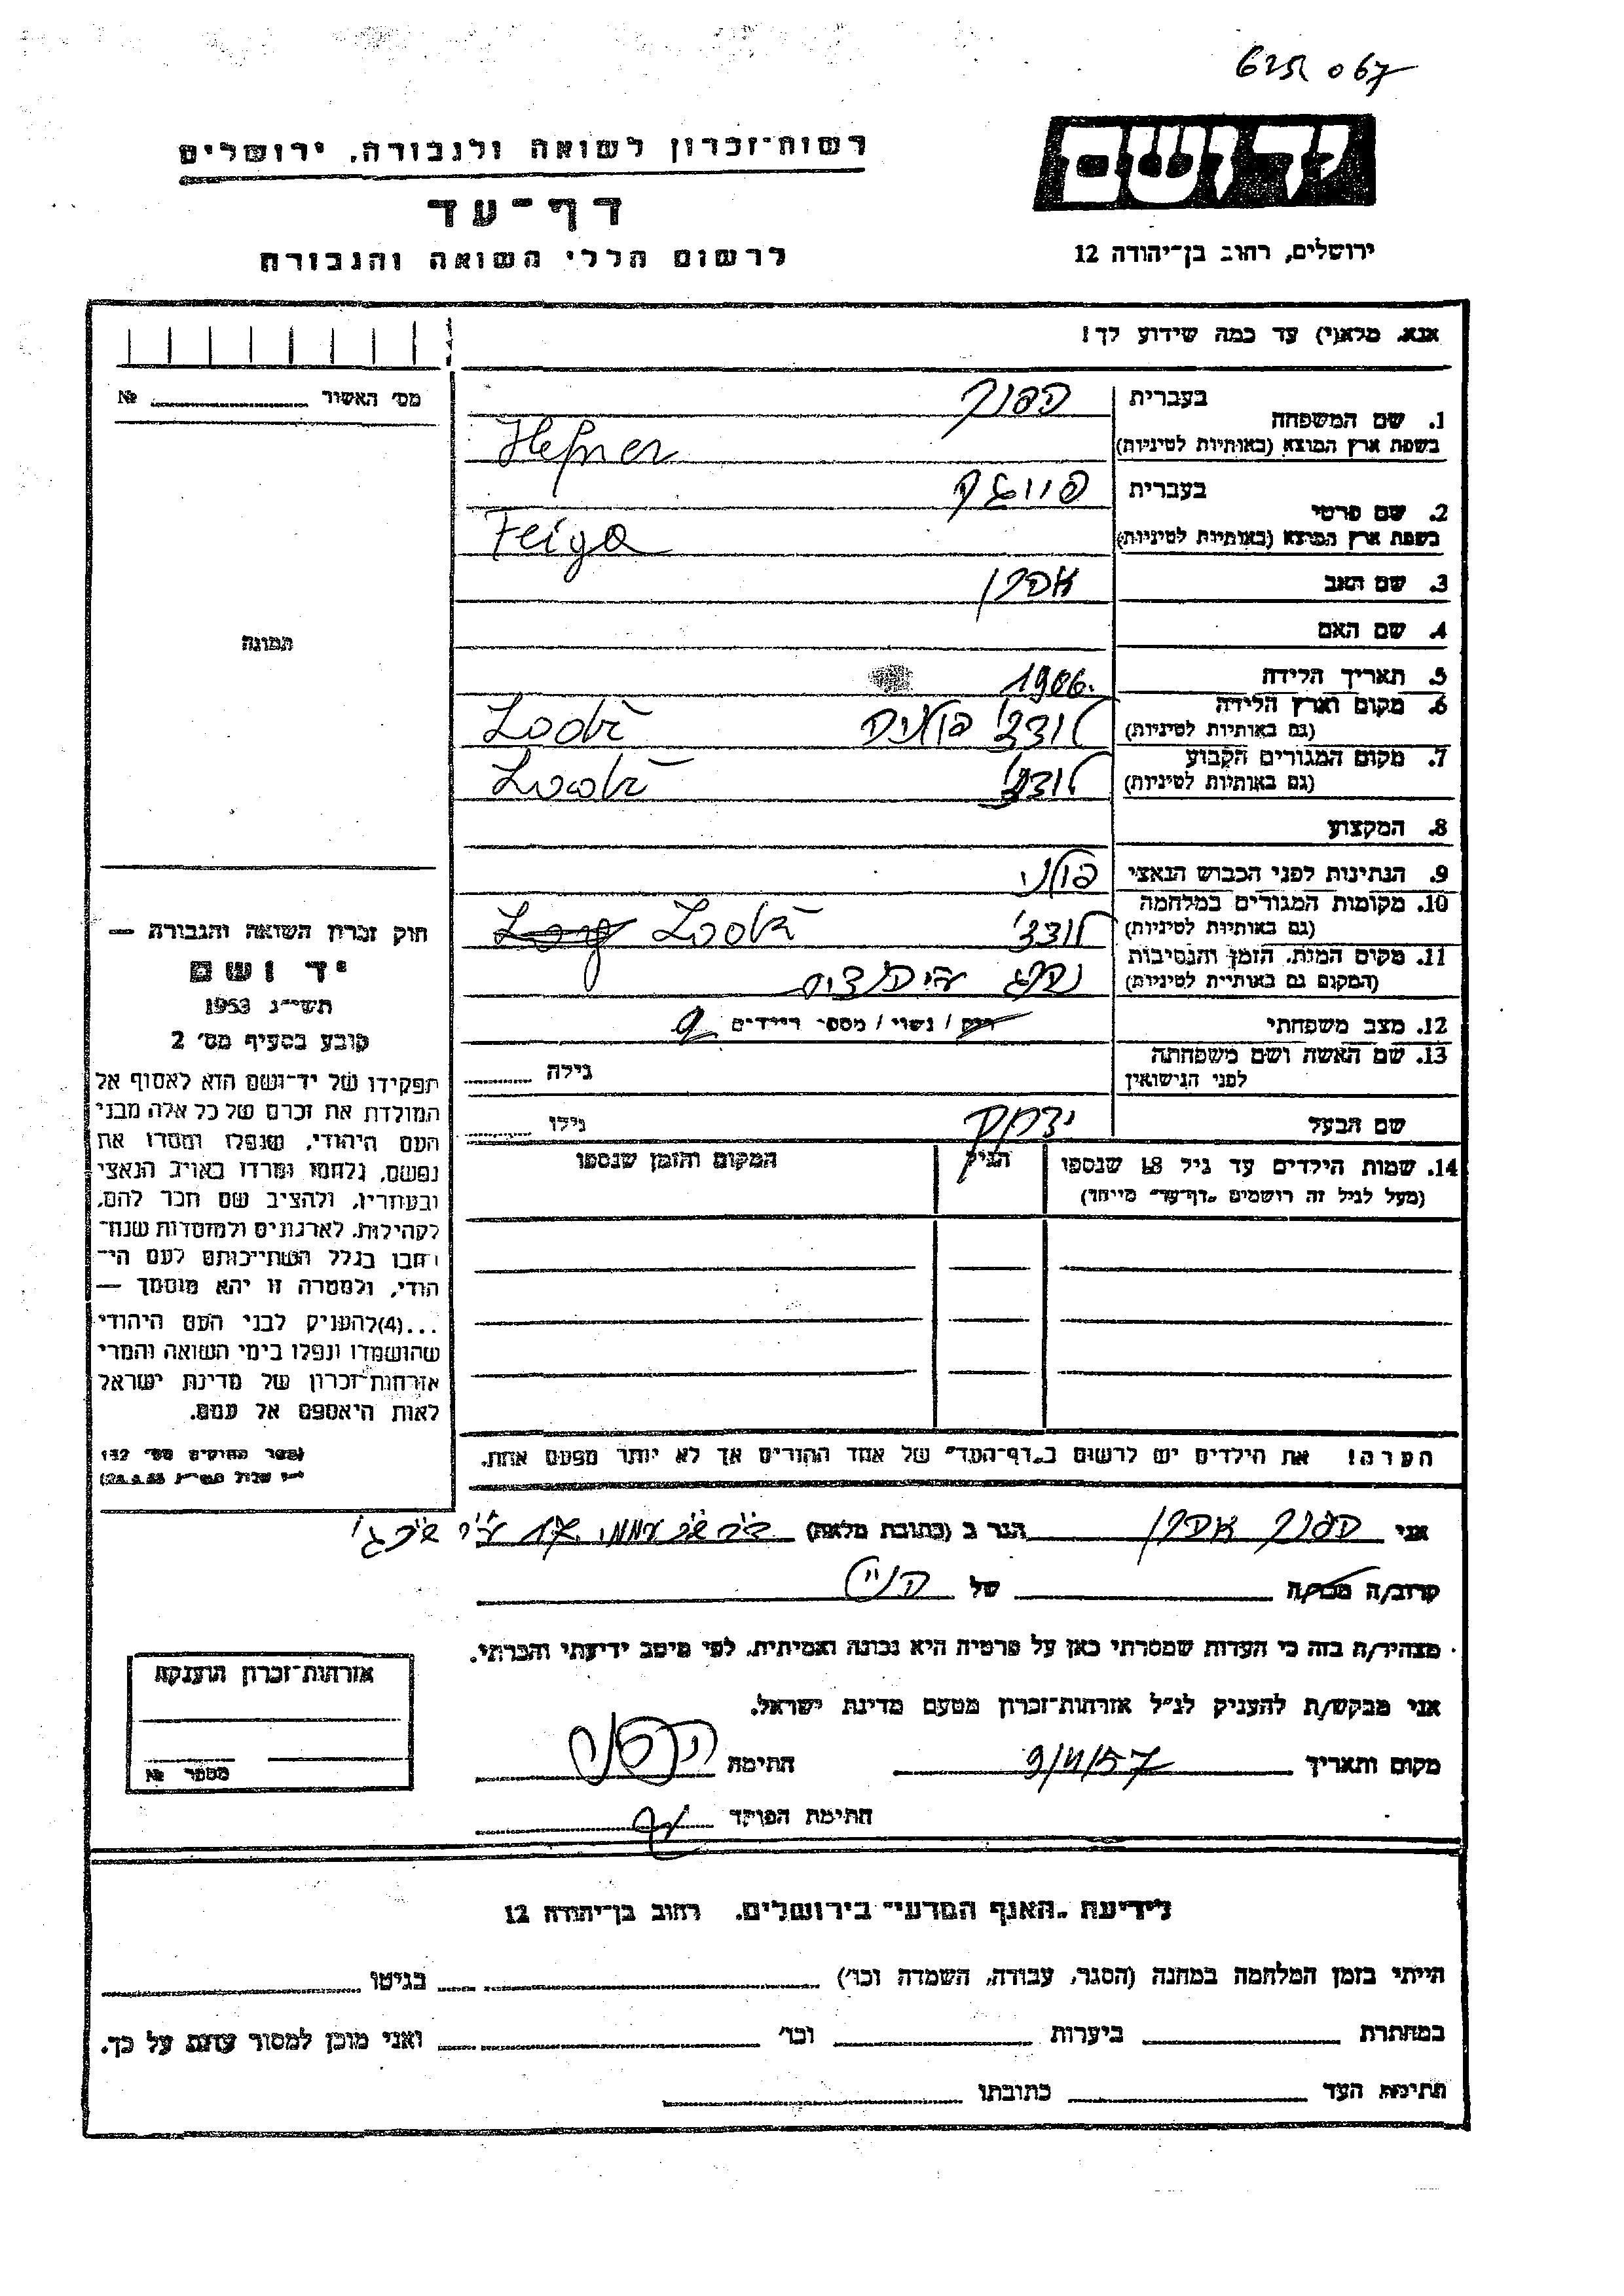 625 067
יד ושם
רשות־זכרון לשואה ולגבורה, ירושלים
דף־עד
לרשום חללי השואה והגבורה
ירושלים, רחוב בן־יהודה 12
אנא, מלא(י) עד כמה שידוע לך!
מס׳ האשור № 
תמונה
חוק זכרון השואה והגבורה —
יד ושם
תשי״ג 1953
קובע בסעיף מס׳ 2
תפקידו של יד־ושם הוא לאסוף אל
המולדת את זכרם של כל אלה מבני
העם היהודי, שנפלו ומסרו את
נפשם, נלחמו ומרדו באויב הנאצי
ובעוזריו, ולהציב שם וזכר להם,
לקהילות, לארגונים ולמוסדות שנח־
רבו בגלל השתייכותם לעם הי־
הודי, ולמטרה זו יהא מוסמך —
...(4)להעניק לבני העם היהודי
שהושמדו ונפלו בימי השואה והמרי
אזרחות־זכרון של מדינת ישראל
לאות היאספם אל עמם.
(ספר החוקים מס׳ 132
1. שם המשפחה בעברית הפנר
בשפת ארץ המוצא (באותיות לטיניות) Hefner
2. שם פרטי בעברית פייגה
בשפת ארץ המוצא (באותיות לטיניות) Feiga
3. שם האב
4. שם האם
5. תאריך הלידה 1906.
6. מקום וארץ הלידה (גם באותיות לטיניות) לודז׳ פולניה Lodź
7. מקום המגורים הקבוע (גם באותיות לטיניות) לודז׳ Lodź
8. המקצוע
9. הנתינות לפני הכבוש הנאצי פולני
10. מקומות המגורים במלחמה (גם באותיות לטיניות) לודז׳ Lodź
11. מקום המות, הזמן והנסיבות (המקום גם באותיות לטיניות)
12. מצב משפחתי רוק / נשוי / מספר הילדים
13. שם האשה ושם משפחתה לפני הנישואין גילה
שם הבעל גילו
14. שמות הילדים עד גיל 18 שנספו הגיל המקום והזמן שנספו
(מעל לגיל זה רושמים „דף־עד״ מיוחד)
הערה! את הילדים יש לרשום ב„דף־העד״ של אחד ההורים אך לא יותר מפעם אחת.
אני הפנר הגר ב (כתובת מלאה)
קרוב/ה מכר/ה של הנ״ל
מצהיר/ה בזה כי העדות שמסרתי כאן על פרטיה היא נכונה ואמיתית, לפי מיטב ידיעתי והכרתי.
אני מבקש/ת להעניק לנ״ל אזרחות־זכרון מטעם מדינת ישראל.
מקום ותאריך 9/4/57 חתימה
חתימת הפוקד
אזרחות־זכרון הוענקה
מספר №
לידיעת „האגף המדעי״ בירושלים, רחוב בן־יהודה 12
הייתי בזמן המלחמה במחנה (הסגר, עבודה, השמדה וכו׳) בגיטו
במחתרת ביערות וכו׳ ואני מוכן למסור עדות על כך.
חתימת העד כתובתו